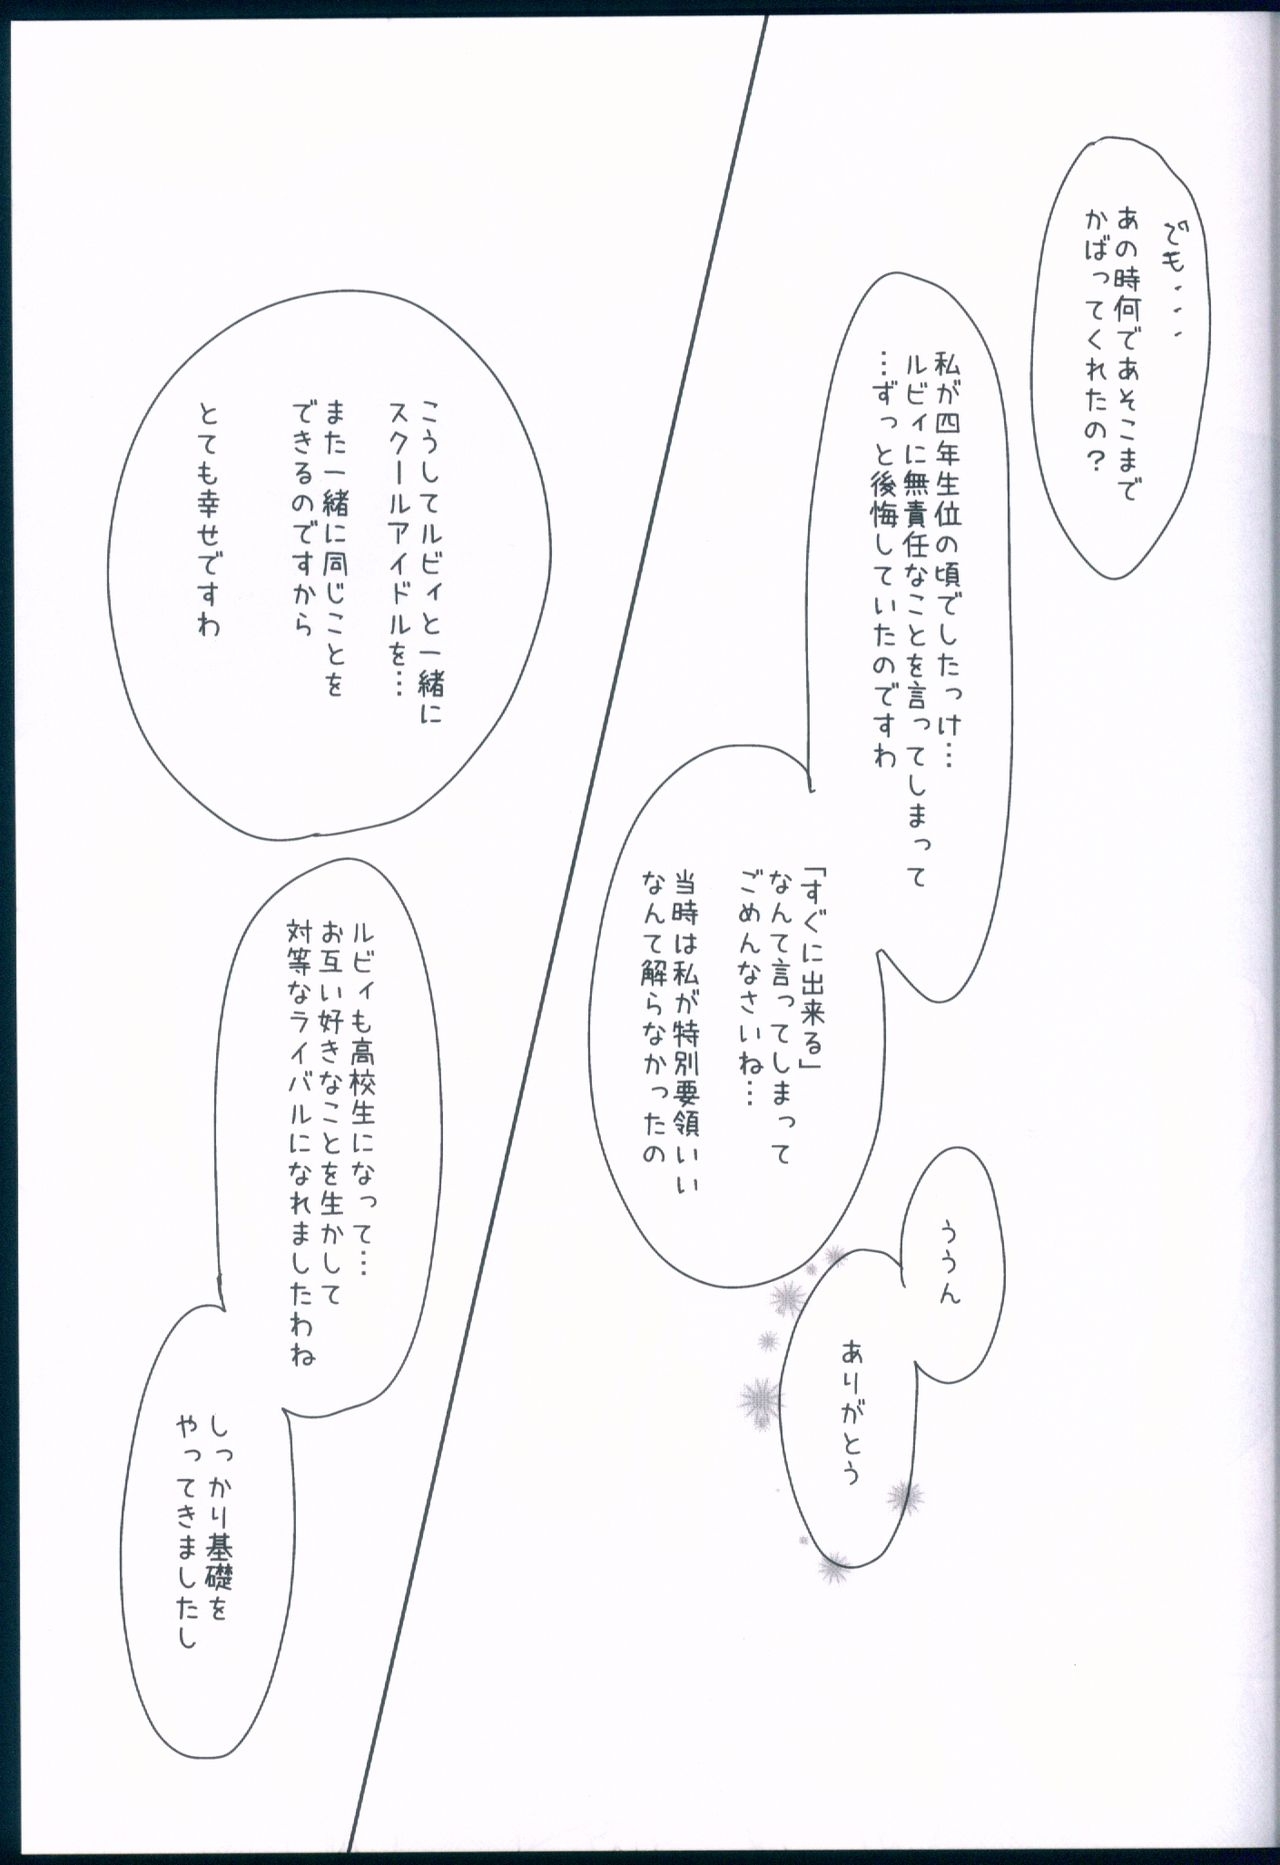 でも・・・
あの時何であそこまで
かばってくれたの？
私が四年生位の頃でしたっけ…
ルビィに無責任なことを言ってしまって
…ずっと後悔していたのですわ
「すぐに出来る」
なんて言ってしまって
ごめんなさいね…
当時は私が特別要領いい
なんて解らなかったの
ううん
ありがとう
こうしてルビィと一緒に
スクールアイドルを…
また一緒に同じことを
できるのですから
とても幸せですわ
ルビィも高校生になって…
お互い好きなことを生かして
対等なライバルになれましたわね
しっかり基礎を
やってきましたし